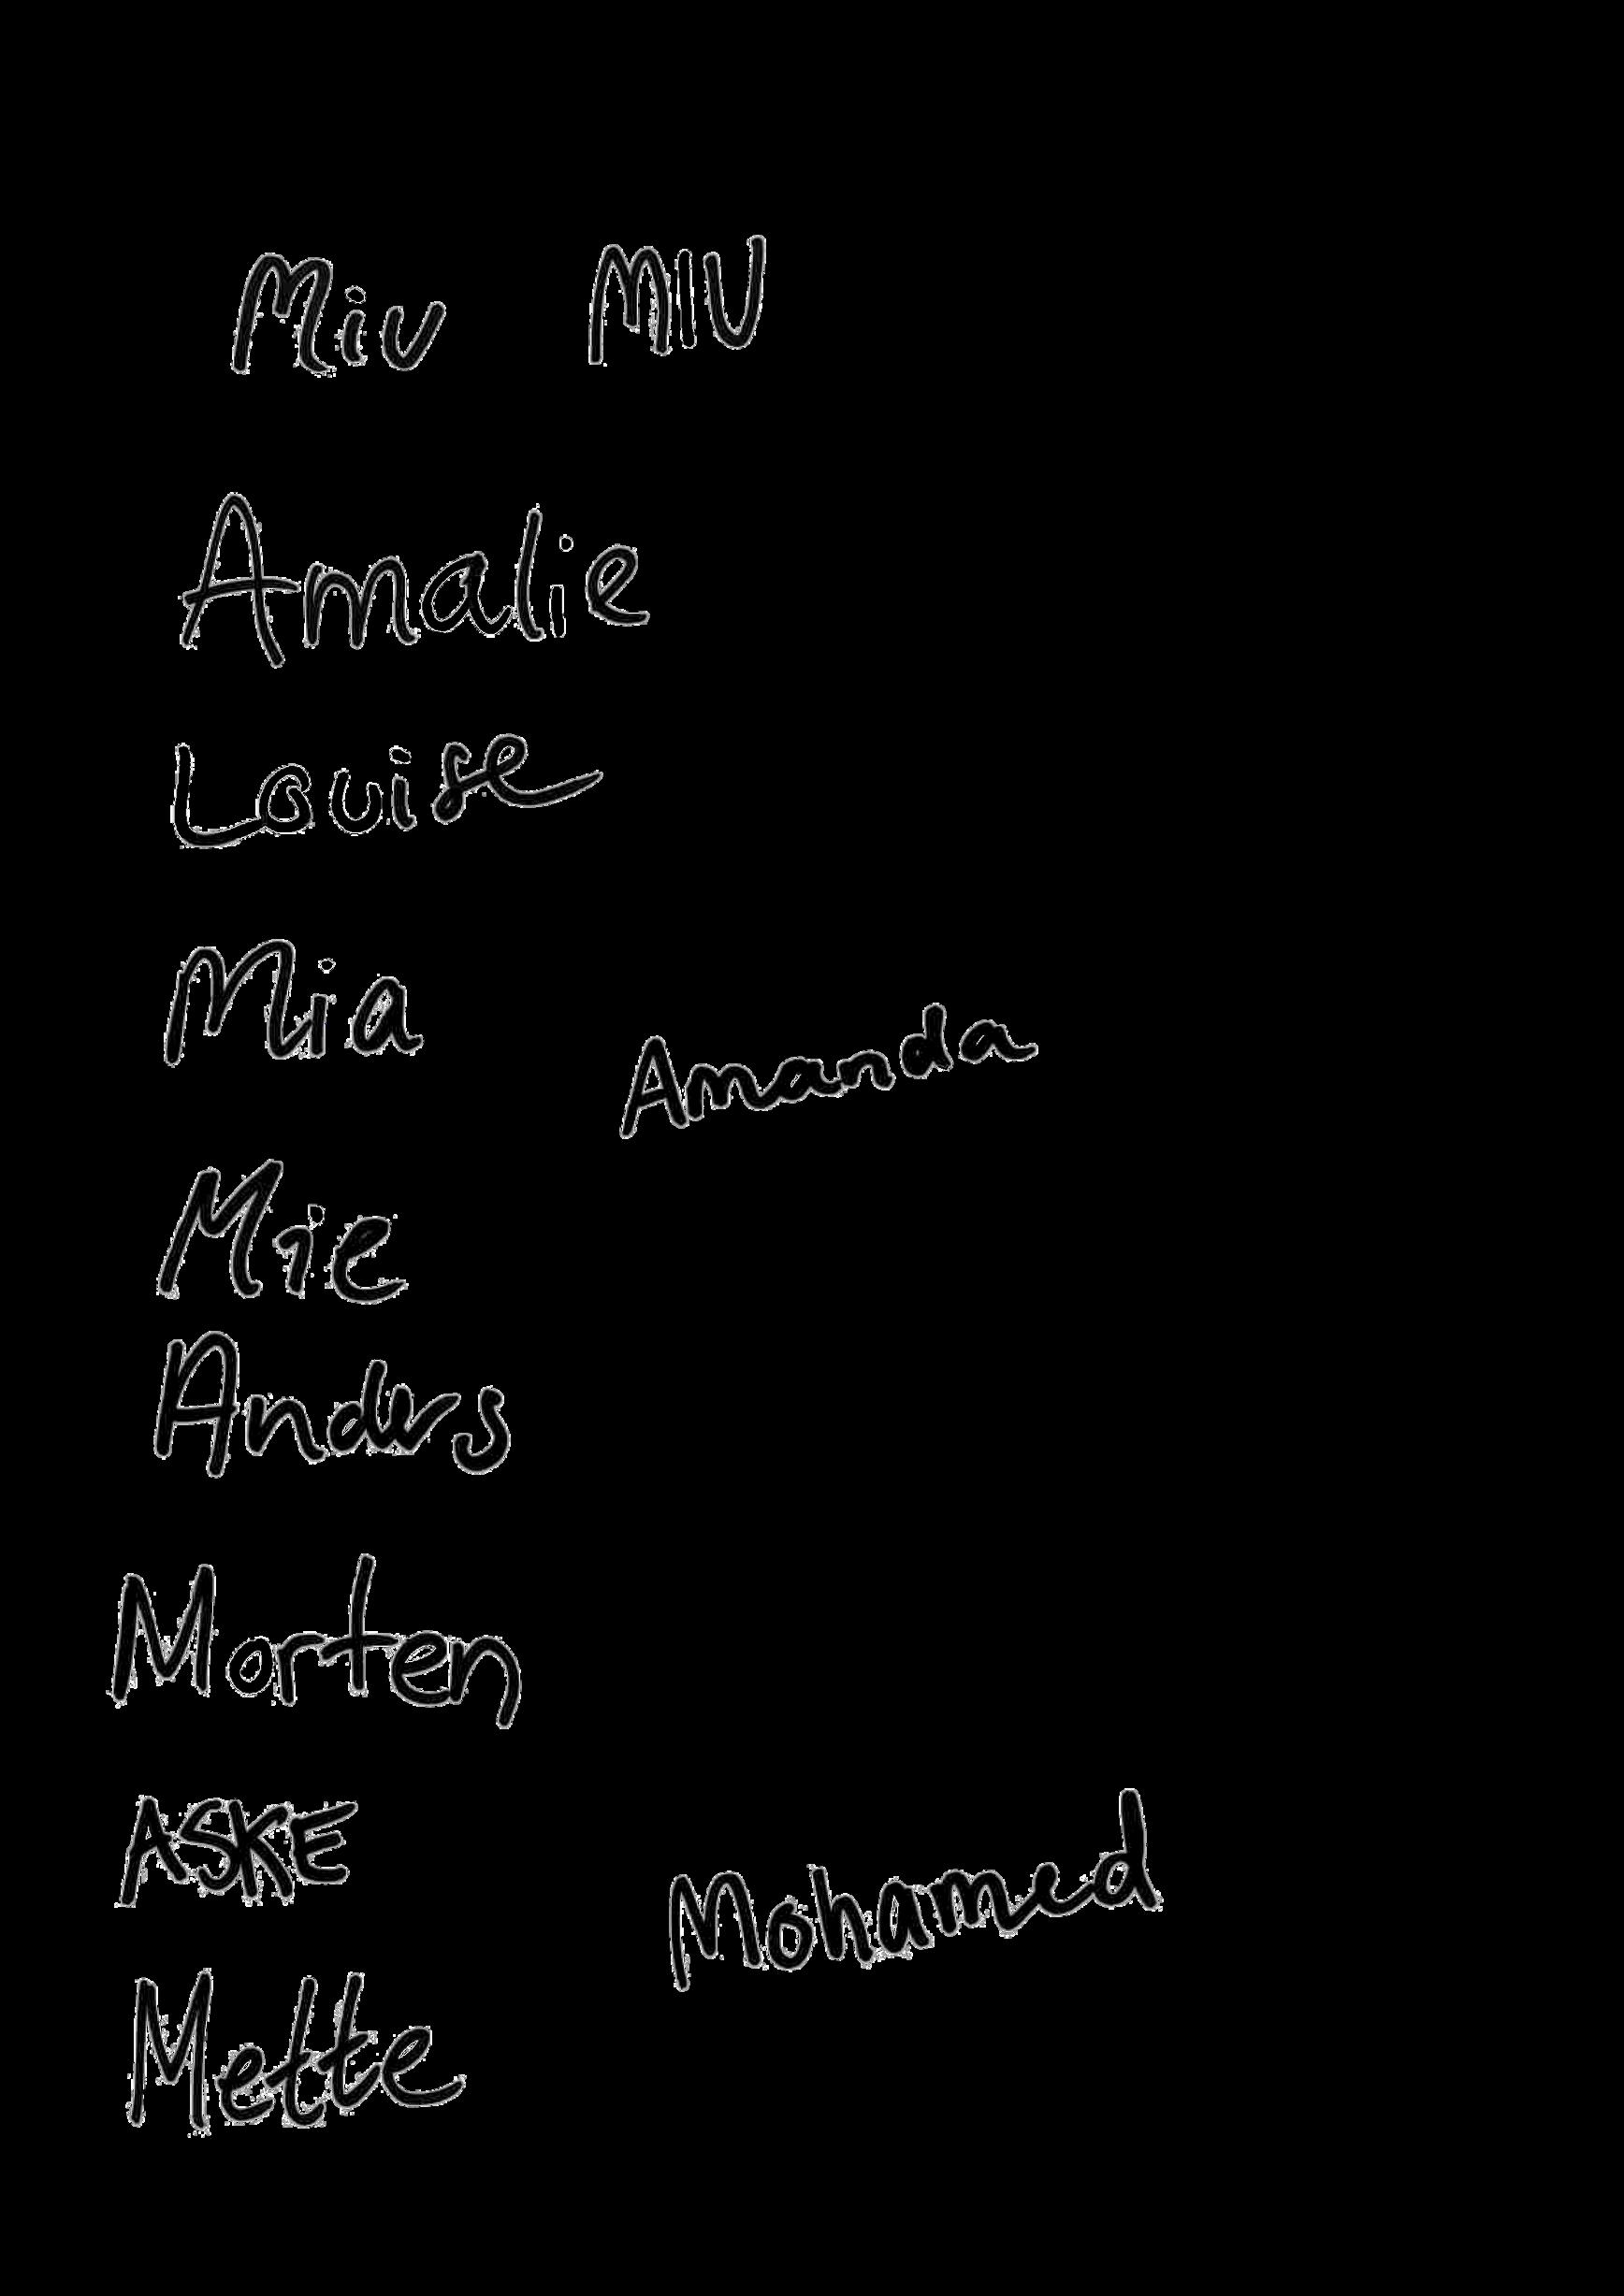 Miv MIU
Amalie
Louise
Mia
Amanda
Mie
Anders
Morten
ASKE
Mohamed
Mette